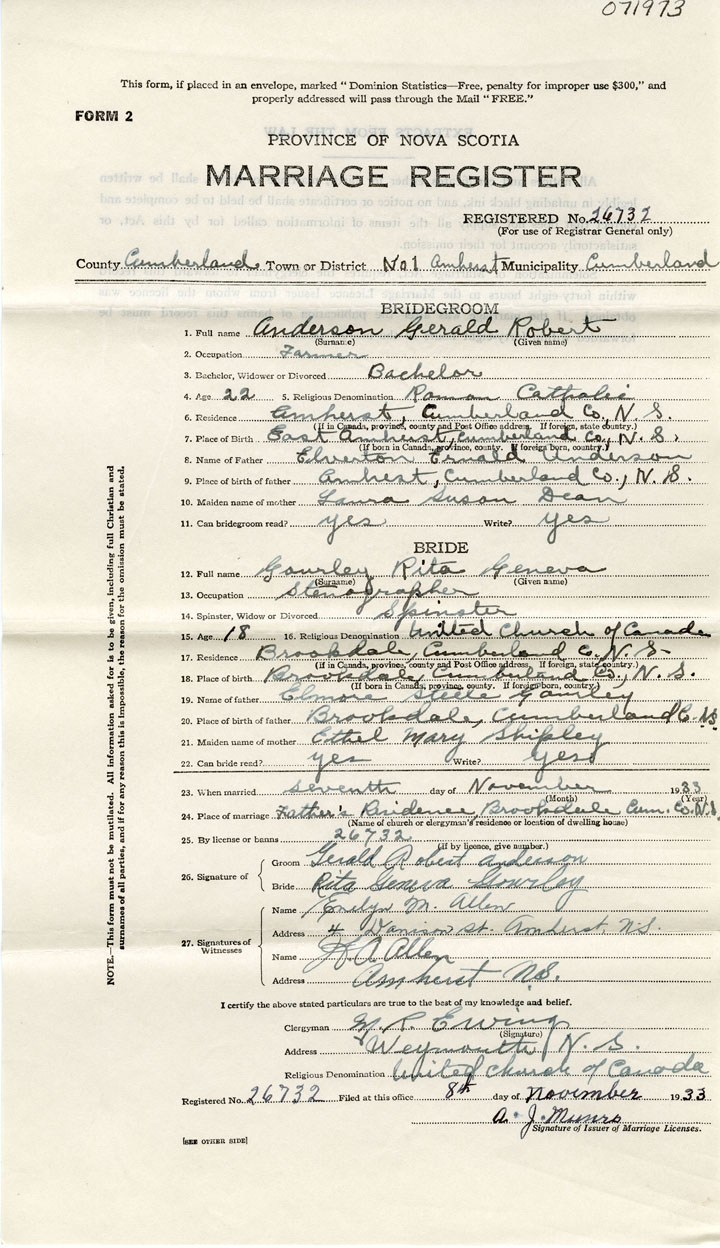 071973
This form, if placed in an envelope, marked "Dominion Statistics—Free, penalty for improper use $300," and
properly addressed will pass through the Mail "FREE."
FORM 2
PROVINCE OF NOVA SCOTIA
MARRIAGE REGISTER
REGISTERED No. 26732
(For use of Registrar General only)
County Cumberland Town or District No1 Amherst Municipality Cumberland
BRIDEGROOM
1. Full name Anderson Gerald Robert
(Surname) (Given name)
2. Occupation Farmer
3. Bachelor, Widower or Divorced Bachelor
4. Age 22 5. Religious Denomination Roman Catholic
6. Residence Amherst, Cumberland Co., N. S.
(If in Canada, province, county and Post Office address. If foreign, state country.)
7. Place of Birth East Amherst, Cumberland Co., N. S.
(If born in Canada, province, county. If foreign born, country.)
8. Name of Father Elverton Ernald Anderson
9. Place of birth of father Amherst, Cumberland Co., N. S.
10. Maiden name of mother Laura Susan Dean
11. Can bridegroom read? yes Write? yes
BRIDE
12. Full name Gourley Rita Geneva
(Surname) (Given name)
13. Occupation Stenographer
14. Spinster, Widow or Divorced Spinster
15. Age 18 16. Religious Denomination United Church of Canada
17. Residence Brookdale, Cumberland Co. N. S.
(If in Canada, province, county and Post Office address. If foreign, state country.)
18. Place of birth Brookdale, Cumberland Co., N. S.
(If born in Canada, province, county. If foreign born, country.)
19. Name of father Elmore Steele Gourley
20. Place of birth of father Brookdale, Cumberland Co. N.S.
21. Maiden name of mother Ethel Mary Shipley
22. Can bride read? yes Write? yes
23. When married seventh day of November 1933
(Month) (Year)
24. Place of marriage Father's Residence, Brookdale Cum. Co. N.S.
(Name of church or clergyman's residence or location of dwelling house)
25. By license or banns 26732
(If by licence, give number.)
26. Signature of Groom Gerald Robert Anderson
Bride Rita Geneva Gourley
27. Signatures of Witnesses
Name Evelyn M. Allen
Address 4 St. Amherst, N.S.
Name Allen
Address Amherst N.S.
I certify the above stated particulars are true to the best of my knowledge and belief.
Clergyman M. P. Ewing
(Signature)
Address Weymouth, N. S.
Religious Denomination United Church of Canada
Registered No. 26732 Filed at this office 8th day of November 1933
A. J. Munro
Signature of Issuer of Marriage Licenses.
[SEE OTHER SIDE]
NOTE.—This form must not be mutilated. All information asked for is to be given, including full Christian and
surnames of all parties, and if for any reason this is impossible, the reason for the omission must be stated.